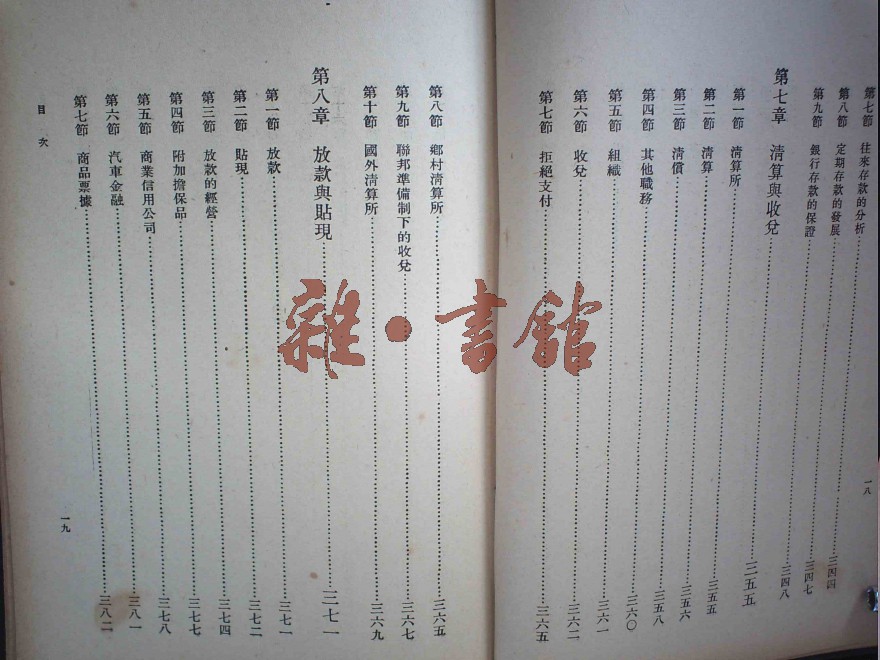 第七節 往來存款的分析……三四四
第八節 定期存款的發展……三四七
第九節 銀行存款的保證……三四八
第七章 清算與收兌……三五五
第一節 清算所……三五五
第二節 清算……三五六
第三節 清償……三五八
第四節 其他職務……三六〇
第五節 組織……三六一
第六節 收兌……三六二
第七節 拒絕支付……三六五
一八
第八節 鄉村清算所……三六五
第九節 聯邦準備制下的收兌……三六七
第十節 國外清算所……三六九
第八章 放款與貼現……三七一
第一節 放款……三七一
第二節 貼現……三七二
第三節 放款的經營……三七四
第四節 附加擔保品……三七七
第五節 商業信用公司……三七八
第六節 汽車金融……三八一
第七節 商品票據……三八二
目次
一九
雜•書館